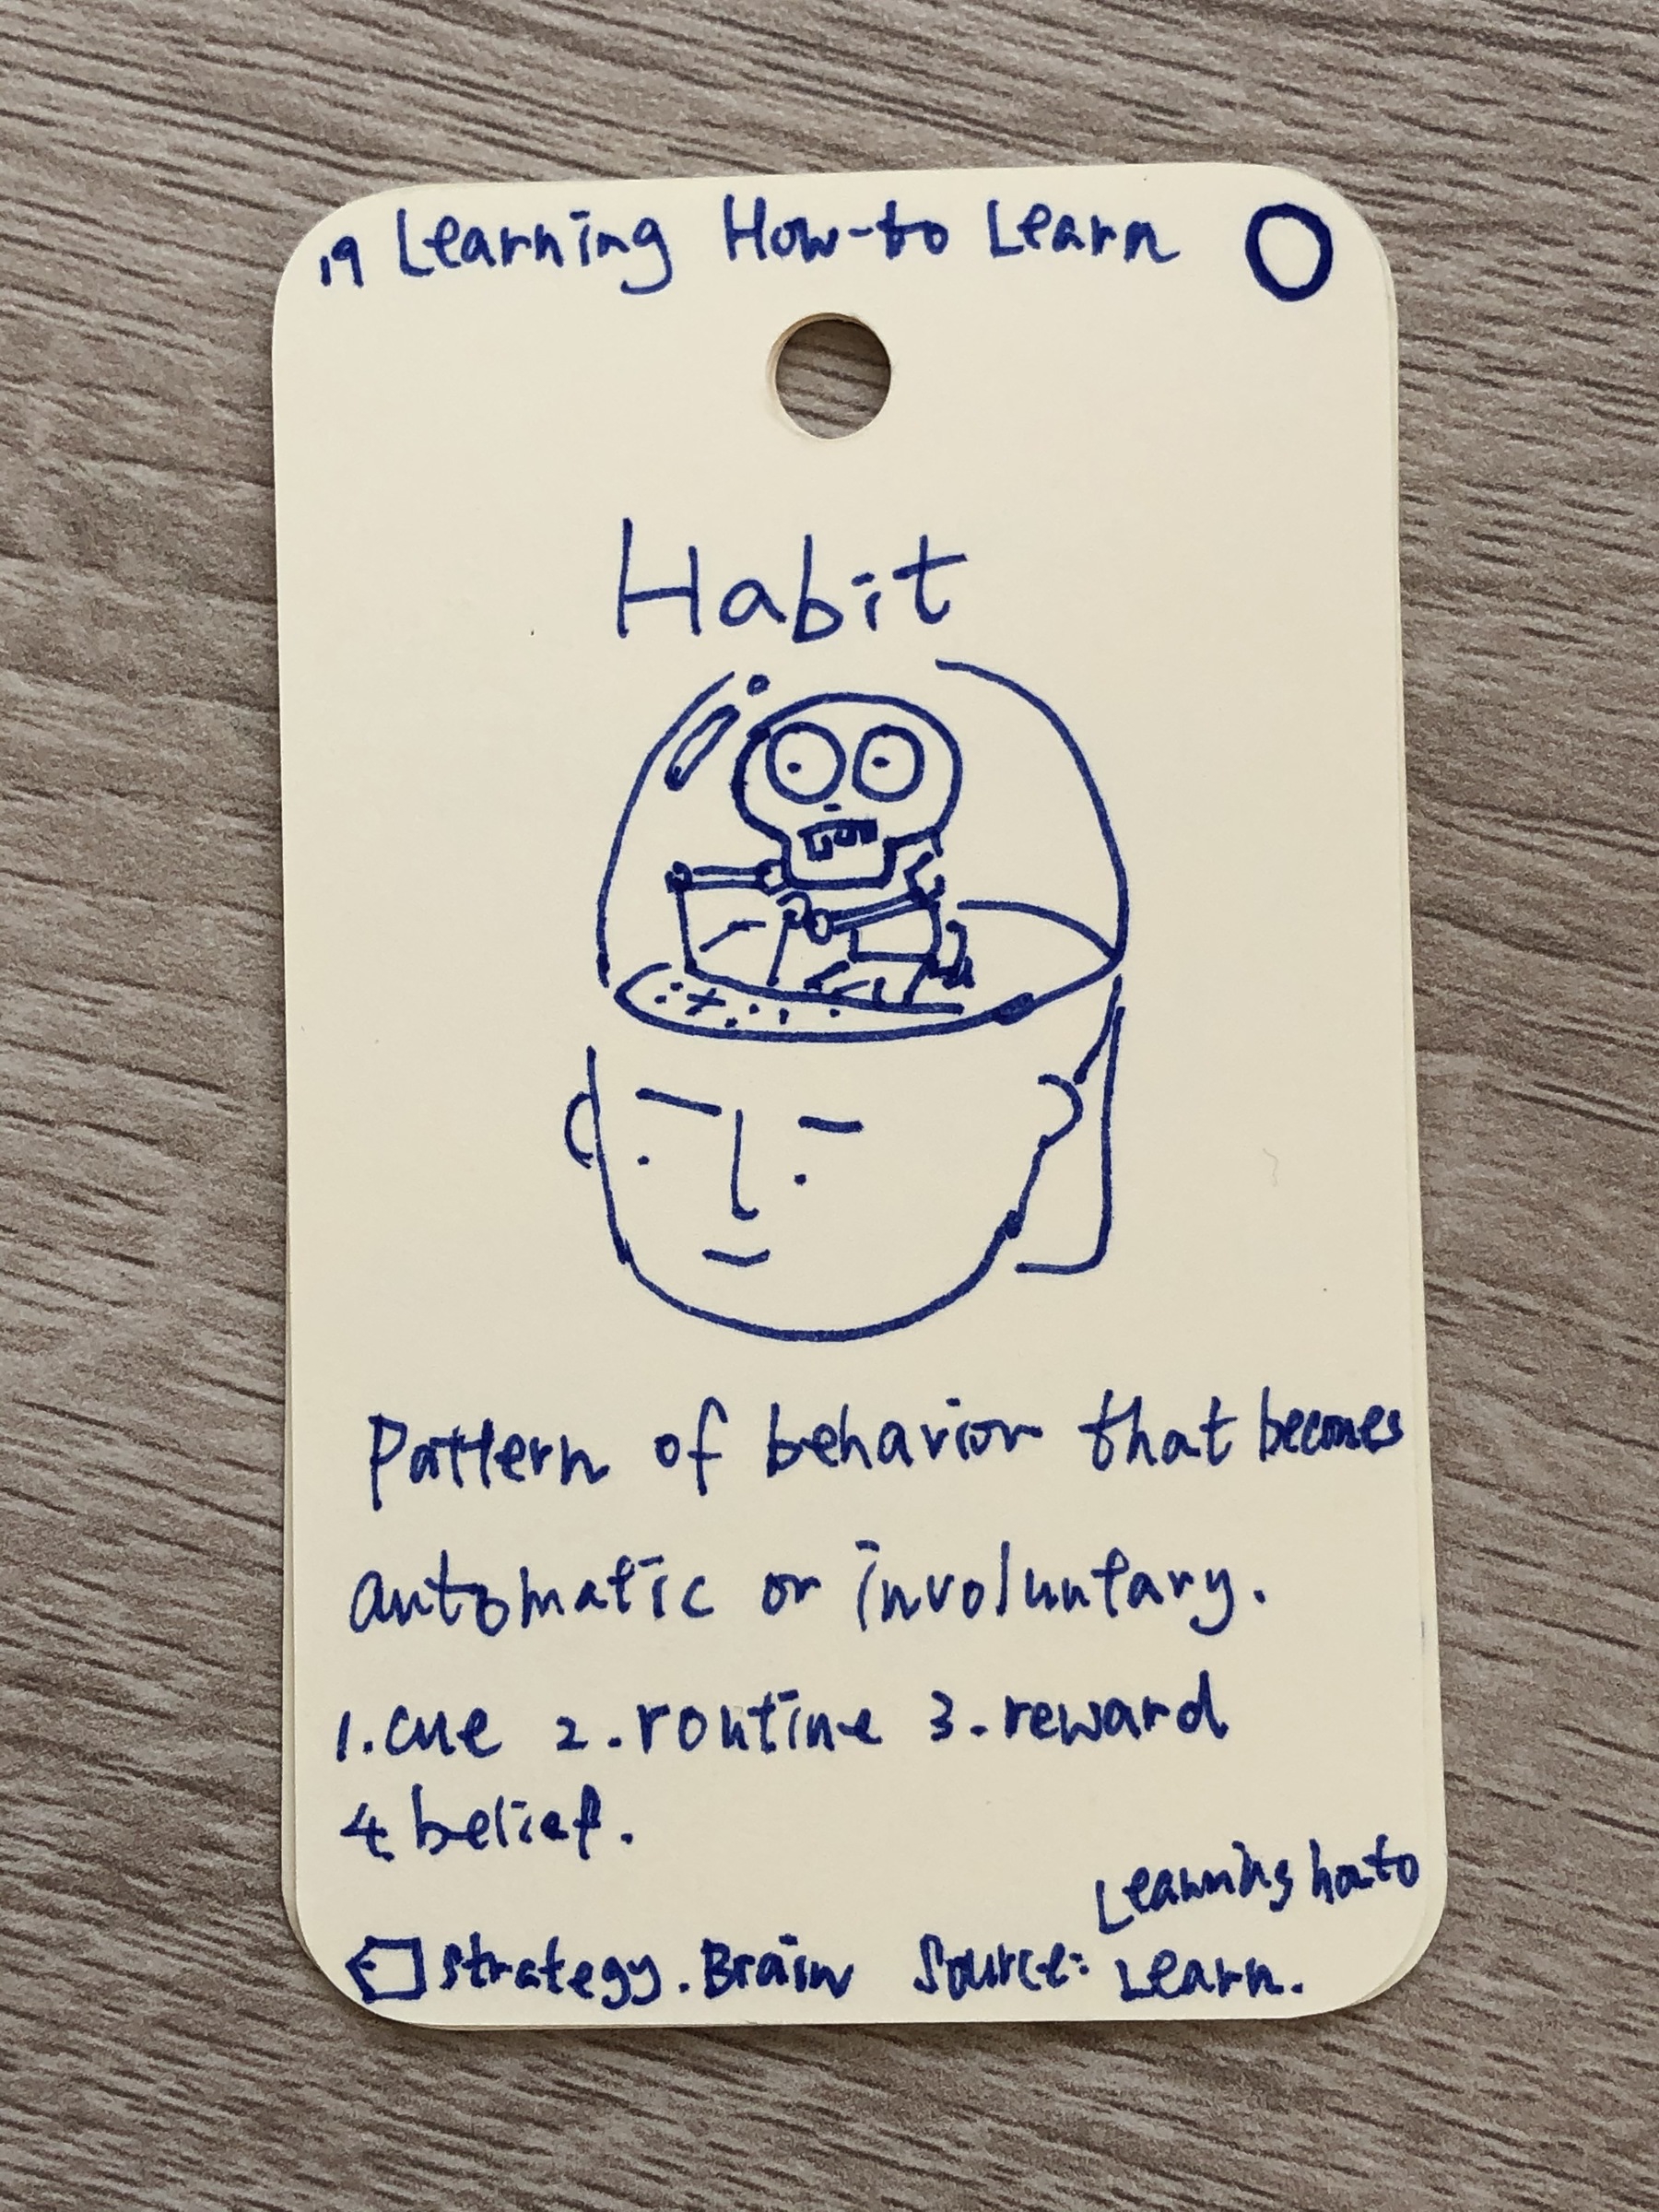 19 Learning How-to Learn
Habit
Pattern of behavior that becomes
automatic or involuntary.
1. cue 2. routine 3. reward
4 belief.
Learning how to
Strategy. Brain Source: Learn.